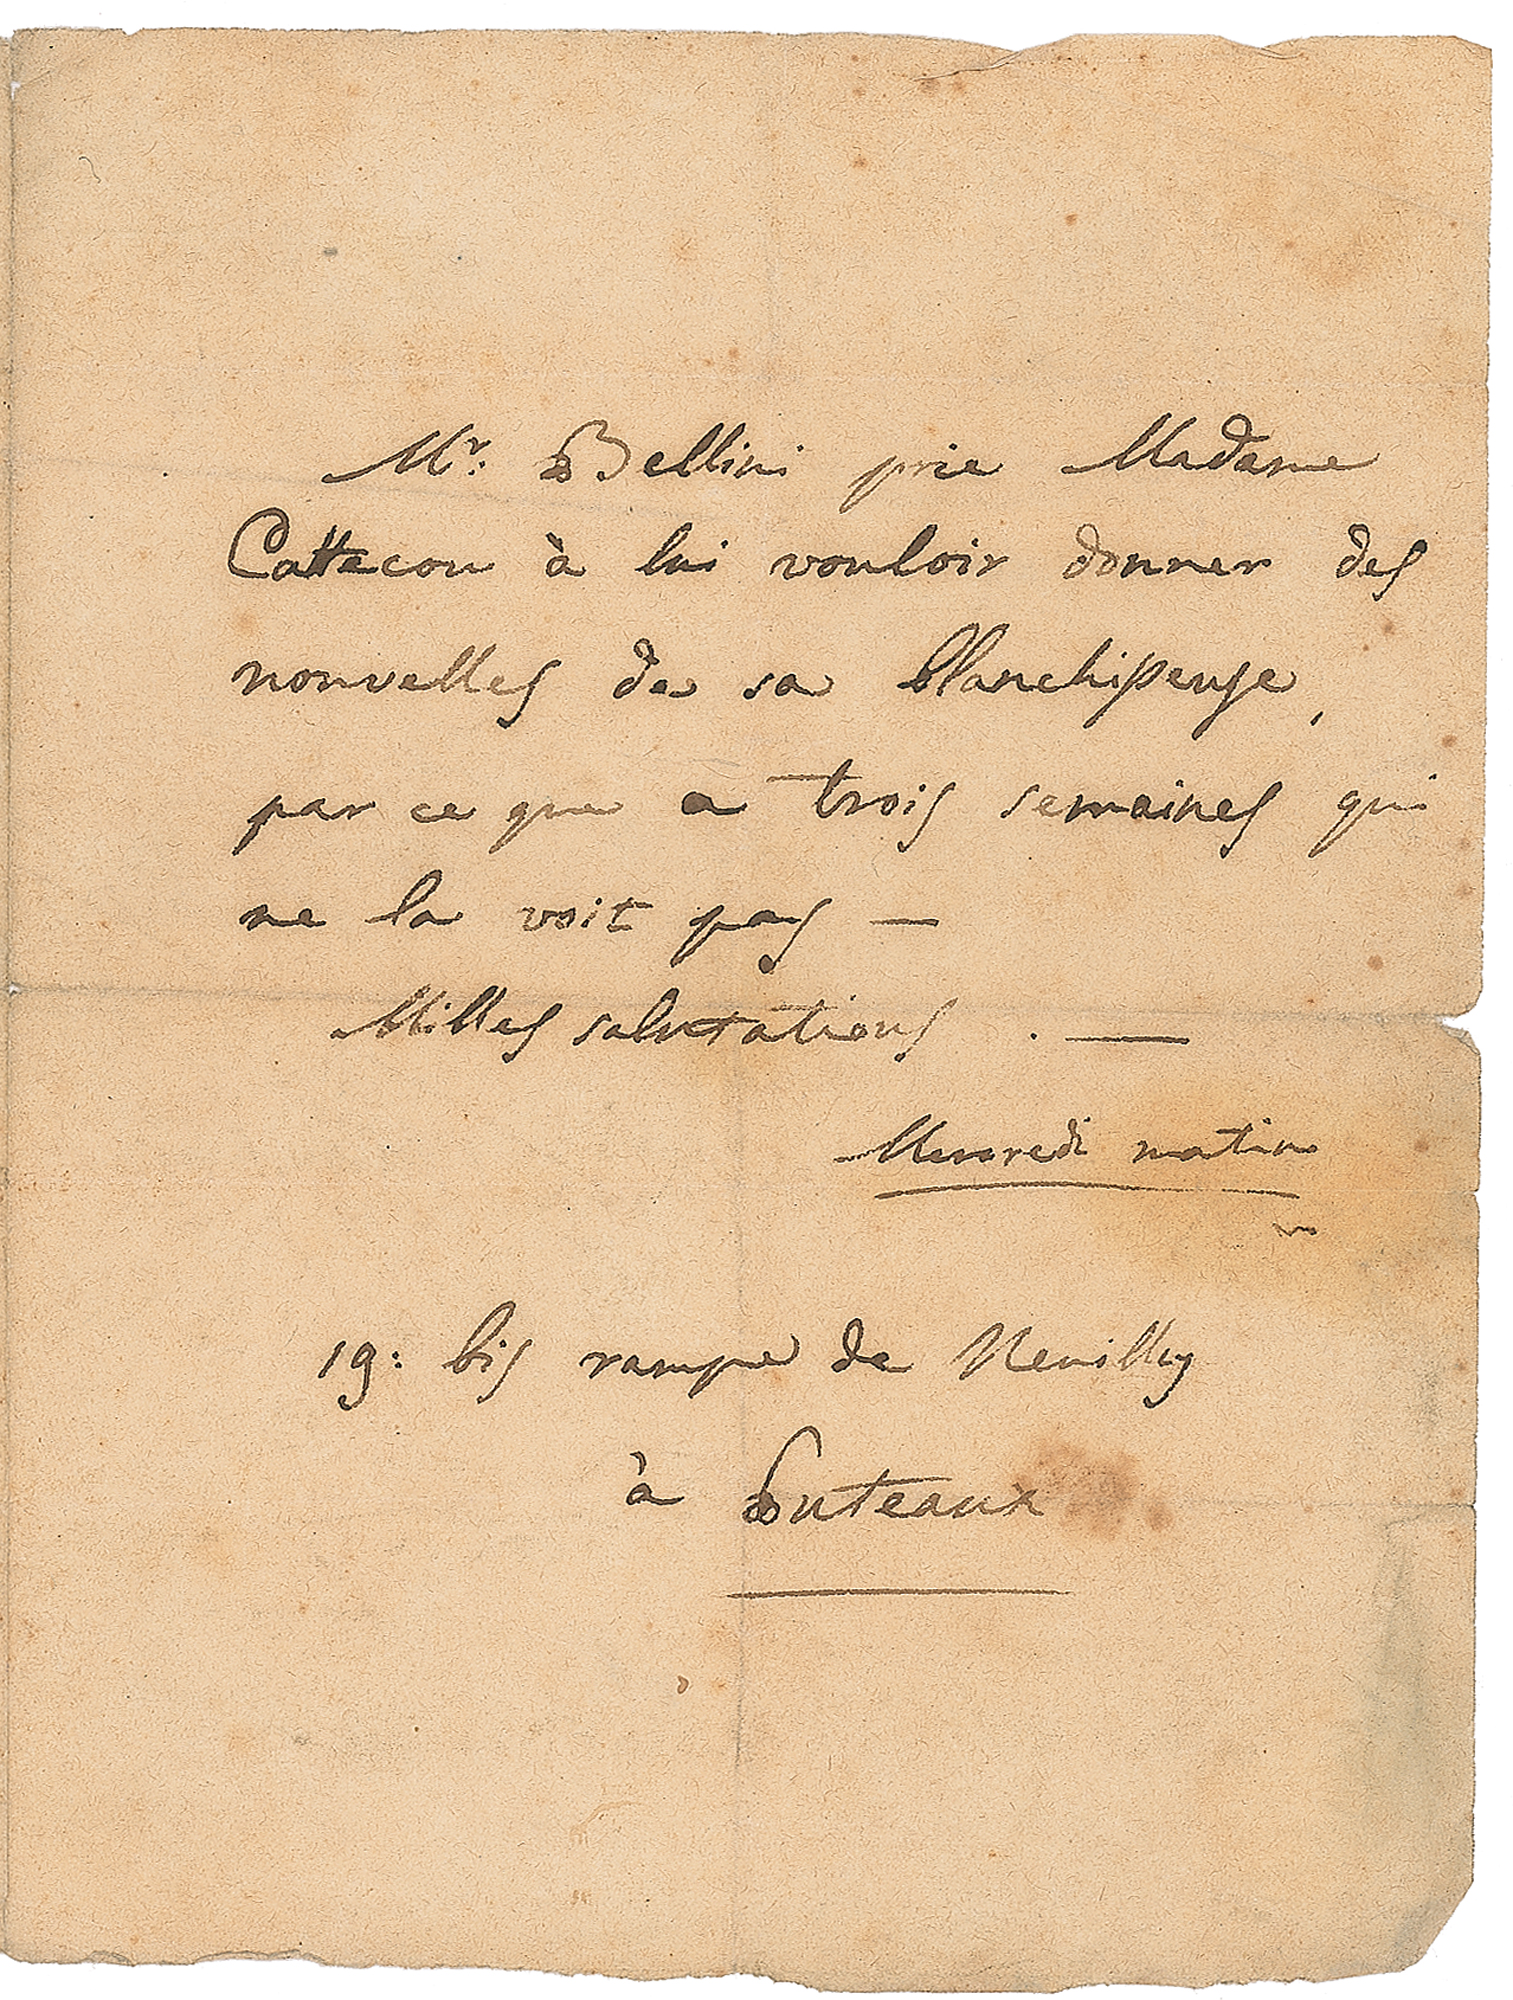 Mr. Bellini prie Madame
Cattecou à lui vouloir donner des
nouvelles de sa blanchisseuse,
par ce que a trois semaines qui
ne la voit pas —
Milles salutations . —
Mercredi matin
19: bis rampe de Neuilly
à Puteaux